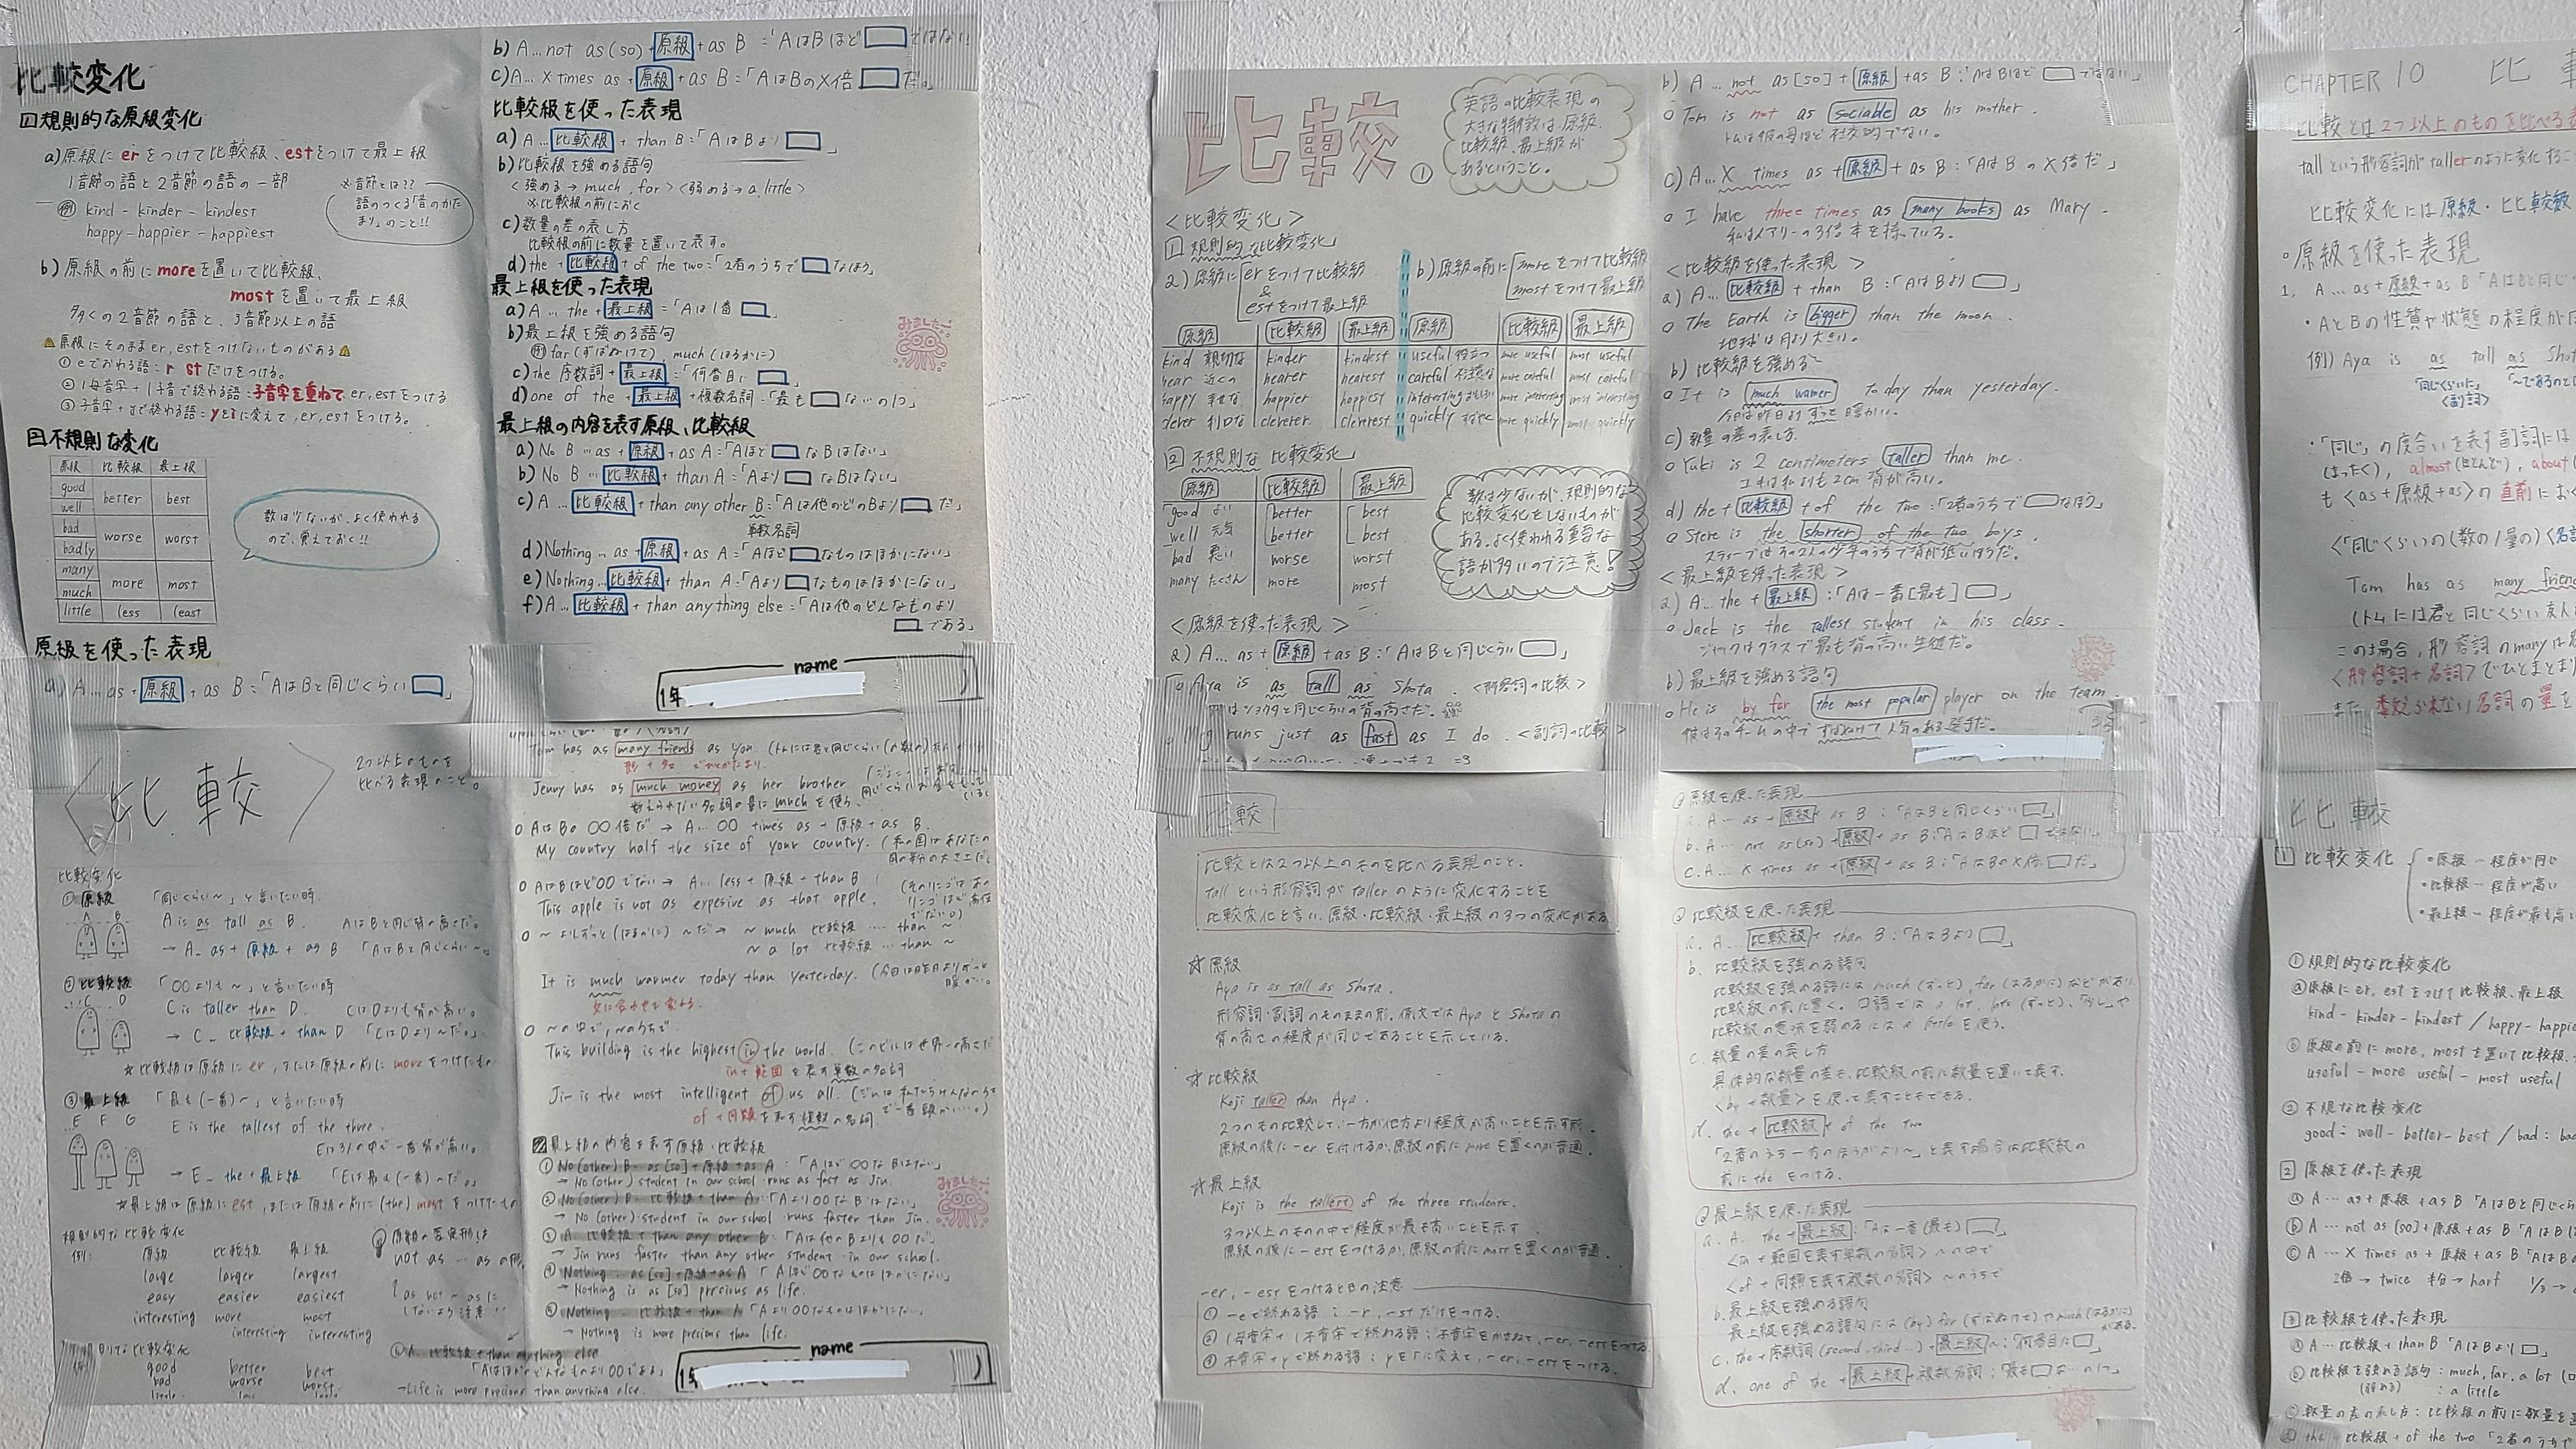 比較変化
1 規則的な原級変化
a) 原級に er をつけて比較級、est をつけて最上級
1音節の語と2音節の語の一部
例 kind - kinder - kindest
happy - happier - happiest
※音節とは??
語のつくる「音のかた
まり」のこと!!
b) 原級の前に more を置いて比較級、
most を置いて最上級
多くの2音節の語と、3音節以上の語
原級にそのまま er, est をつけないものがある
① e でおわる語: r st だけをつける。
② 1母音字 + 1子音で終わる語: 子音字を重ねて er, est をつける
③ 子音字 + y で終わる語 = y を i に変えて, er, est をつける。
2 不規則な変化
原級 比較級 最上級
good
well better best
bad
badly worse worst
many
much more most
little less least
数は少ないが、よく使われる
ので、覚えておく!!
原級を使った表現
a) A... as + 原級 + as B :「AはBと同じくらい□」
b) A... not as (so) + 原級 + as B :「AはBほど□ではない」
c) A... X times as + 原級 + as B :「AはBのX倍□だ。
比較級を使った表現
a) A... 比較級 + than B :「AはBより□」
b) 比較級を強める語句
<強める→ much, far> <弱める→ a little>
※比較級の前におく
c) 数量の差の表し方
比較級の前に数量を置いて表す。
d) the + 比較級 + of the two :「2者のうちで□なほう」
最上級を使った表現
a) A ... the + 最上級 =「Aは1番□」
b) 最上級を強める語句
例 far (ずばぬけて), much (はるかに)
c) the 序数詞 + 最上級 =「何番目に□」
d) one of the + 最上級 + 複数名詞 :「最も□ないの1つ」
みました
最上級の内容を表す原級、比較級
a) No B ... as + 原級 + as A =「Aほど□なBはない」
b) No B ... 比較級 + than A =「Aより□なBはない」
c) A ... 比較級 + than any other B :「Aは他のどのBより□だ」
単数名詞
d) Nothing ... as + 原級 + as A =「Aほど□なものはほかにない」
e) Nothing ... 比較級 + than A :「Aより□なものはほかにない」
f) A ... 比較級 + than anything else =「Aは他のどんなものより
□である」
name
1年
<比較>
2つ以上のものを
比べる表現のこと。
比較変化
① 原級 「同じくらい~」と言いたい時
A B
A is as tall as B. AはBと同じ背の高さだ。
→ A... as + 原級 + as B 「AはBと同じくらい~。
② 比較級 「○○よりも~」と言いたい時
C D
C is taller than D. CはDよりも背が高い。
→ C... 比較級 + than D 「CはDより~だ。」
☆比較級は原級に er, または原級の前に more をつけたもの
③ 最上級 「最も(一番)~」と言いたい時
E F G
E is the tallest of the three.
Eは3人の中で一番背が高い。
→ E... the + 最上級 「Eは最も(一番)~だ。」
☆最上級は原級に est, または原級の前に (the) most をつけたもの
規則的な比較変化
例: 原級 比較級 最上級
large larger largest
easy easier easiest
interesting more most
interesting interesting
原級の否定形は
not as ... as の形
good better best
bad worse worst
Tom has as many friends as you.
Jenny has as much money as her brother
数えられない名詞の量に much を使う。
○ AはBの○○倍だ → A... ○○ times as + 原級 + as B.
My country half the size of your country.
○ AはBほど○○でない → A... less + 原級 + than B
This apple is not as expesive as that apple.
○ ~よりずっと(はるかに)~だ → ~ much 比較級 ... than ~
~ a lot 比較級 ... than ~
It is much warmer today than yesterday.
○ ~の中で, ~のうちで
This building is the highest in the world.
in + 範囲を表す単数の名詞
Jim is the most intelligent of us all.
of + 同類を表す複数の名詞
最上級の内容を表す原級・比較級
① No (other) B... as [so] + 原級 + as A :「Aほど○○なBはない」
→ No (other) student in our school runs as fast as Jin.
② No (other) B... 比較級 + than A :「Aより○○なBはない」
→ No (other) student in our school runs faster than Jin.
③ A... 比較級 + than any other B :「Aは他のBよりも○○だ」
→ Jin runs faster than any other student in our school.
④ Nothing ... as [so] + 原級 + as A 「Aほど○○なものはほかにない」
→ Nothing is as [so] precious as life.
⑤ Nothing ... 比較級 + than A 「Aより○○なものはほかにない」
→ Nothing is more precious than life.
⑥ A... 比較級 + than anything else
→ Life is more precious than anything else.
みました
name
1年
比較 ①
英語の比較表現の
大きな特徴は、原級、
比較級、最上級が
あるということ。
<比較変化>
1 規則的な比較変化
a) 原級に er をつけて比較級
&
est をつけて最上級
b) 原級の前に more をつけて比較級
most をつけて最上級
原級 比較級 最上級 原級 比較級 最上級
kind 親切な kinder kindest useful 役立つ more useful most useful
near 近くの nearer nearest careful more careful most careful
happy 幸せな happier happiest interesting more interesting most interesting
clever 利口な cleverer cleverest quickly すばやく more quickly most quickly
2 不規則な比較変化
原級 比較級 最上級
good よい better best
well 元気 better best
bad 悪い worse worst
many たくさん more most
数は少ないが、規則的な
比較変化をしないものが
ある。よく使われる重要な
語が多いので注意!
<原級を使った表現>
a) A... as + 原級 + as B :「AはBと同じくらい□」
Aya is as tall as Shota. <形容詞の比較>
はショウタと同じくらいの背の高さだ。
runs just as fast as I do. <副詞の比較>
b) A ... not as [so] + 原級 + as B :「AはBほど□でない」
○ Tom is not as sociable as his mother.
トムは彼の母ほど社交的でない。
c) A... X times as + 原級 + as B :「AはBのX倍だ」
○ I have three times as many books as Mary.
私はメアリーの3倍本を持っている。
<比較級を使った表現>
a) A... 比較級 + than B :「AはBより□」
○ The Earth is bigger than the moon.
地球は月より大きい。
b) 比較級を強める
○ It is much wamer today than yesterday.
今日は昨日よりずっと暖かい。
c) 数量の差の表し方
○ Yuki is 2 centimeters taller than me.
ユキは私よりも2cm背が高い。
d) the + 比較級 + of the two :「2者のうちで□なほう」
○ Steve is the shorter of the two boys.
スティーブはその2人の少年のうちで背が低いほうだ。
<最上級を使った表現>
a) A... the + 最上級 :「Aは一番[最も]□」
○ Jack is the tallest student in his class.
ジャックはクラスで最も背の高い生徒だ。
b) 最上級を強める語句
○ He is by far the most popular player on the team.
彼はそのチームの中でずばぬけて人気のある選手だ。
較
比較とは2つ以上のものを比べる表現のこと。
tall という形容詞が taller のように変化することを
比較変化と言い、原級・比較級・最上級の3つの変化がある。
☆原級
Aya is as tall as Shota.
形容詞・副詞のそのままの形。例文では Aya と Shota の
背の高さの程度が同じであることを示している。
☆比較級
Koji taller than Aya.
2つのもの比較して、一方が他方より程度が高いことを示す形。
原級の後に -er を付けるか、原級の前に more を置くのが普通。
☆最上級
Koji is the tallest of the three students.
3つ以上のものの中で程度が最も高いことを示す
原級の後に -est をつけるか、原級の前に most を置くのが普通。
-er, -est をつけるときの注意
① -e で終わる語 : -r, -st だけをつける。
② 1母音字 + 1子音字で終わる語 : 子音字をかさねて, -er, -est をつける。
③ 子音字 + y で終わる語 : y を i に変えて, -er, -est をつける。
原級を使った表現
a. A... as + 原級 + as B :「AはBと同じくらい□」
b. A ... not as (so) + 原級 + as B :「AはBほど□ではない」
c. A... X times as + 原級 + as B :「AはBのX倍□だ」
比較級を使った表現
a. A... 比較級 + than B :「AはBより□」
b. 比較級を強める語句
比較級を強める語には much (ずっと), far (はるかに) などがあり
比較級の前に置く。口語では a lot, lots (ずっと)、「少し」や
比較級の意味を弱めるには a little を使う。
c. 数量の差の表し方
具体的な数量の差も、比較級の前に数量を置いて表す。
<by + 数量> を使って表すこともできる。
d. the + 比較級 + of the two
「2者のうち一方のほうがより~」と表す場合は比較級の
前に the をつける。
最上級を使った表現
a. A... the + 最上級 :「Aは一番(最も)□」
<in + 範囲を表す単数の名詞> ~の中で
<of + 同類を表す複数の名詞> ~のうちで
b. 最上級を強める語句
最上級を強める語句には (by) far (ずばぬけて) や much (はるかに)
がある。
c. the + 序数詞 (second, third...) + 最上級 ~ :「何番目に□」
d. one of the + 最上級 + 複数名詞 :「最も□な…の1つ」
CHAPTER 10 比
比較とは2つ以上のものを比べる
tall という形容詞が taller のように変化するこ
比較変化には原級・比較級
○原級を使った表現
1. A ... as + 原級 + as B 「AはBと同じ
・AとBの性質や状態の程度が
例) Aya is as tall as Shota
「同じくらいに」
<副詞>
・「同じ」の度合いを表す副詞には
(まったく), almost (ほとんど), about
も <as + 原級 + as> の直前にお
<「同じくらいの(数の/量の)<名
Tom has as many frien
(トムには君と同じくらい友人
この場合, 形容詞の many は
<形容詞+名詞> でひとまとまり
また 数えられない名詞の量を
比較
1 比較変化
・原級 … 程度が同じ
・比較級 … 程度が高い
・最上級 … 程度が最も高
① 規則的な比較変化
ⓐ 原級に er, est をつけて比較級、最上級
kind - kinder - kindest / happy - happie
ⓑ 原級の前に more, most を置いて比較級、
useful - more useful - most useful
② 不規な比較変化
good = well - better - best / bad = bad
2 原級を使った表現
ⓐ A ... as + 原級 + as B 「AはBと同じく
ⓑ A ... not as [so] + 原級 + as B 「AはB
ⓒ A ... X times as + 原級 + as B 「AはBの
2倍 → twice 半分 → harf 1/3 →
3 比較級を使った表現
ⓐ A ... 比較級 + than B 「AはBより□」
ⓑ 比較級を強める語句 : much, far, a lot
(弱める) : a little
ⓒ 数量の差の表し方 : 比較級の前に数量を
ⓓ the 比較級 + of the two 「2者のうち